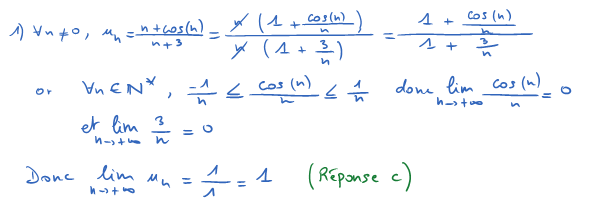 1) ∀n ≠ 0, uₙ = (n + cos(n))/(n + 3) = (n (1 + cos(n)/n))/(n (1 + 3/n)) = (1 + cos(n)/n)/(1 + 3/n)
or ∀n ∈ ℕ*, -1/n ≤ cos(n)/n ≤ 1/n donc lim n→+∞ cos(n)/n = 0
et lim n→+∞ 3/n = 0
Donc lim n→+∞ uₙ = 1/1 = 1 (Réponse c)